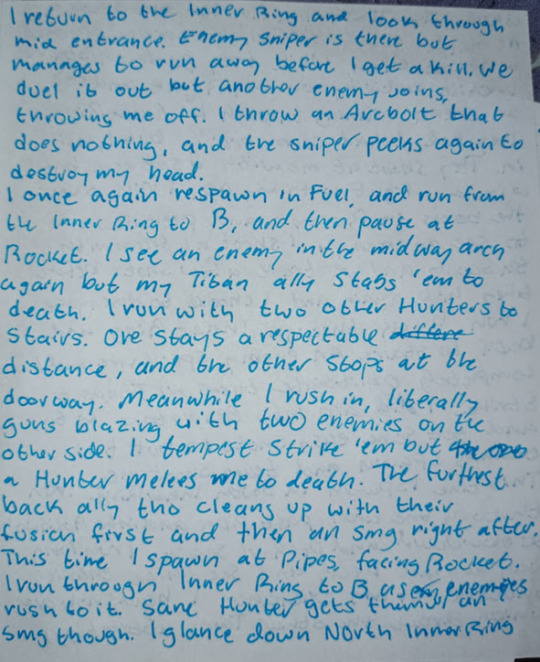 I return to the Inner Ring and look through
mid entrance. Enemy sniper is there but
manages to run away before I get a kill. We
duel it out but another enemy joins,
throwing me off. I throw an Arcbolt that
does nothing, and the sniper peeks again to
destroy my head.
I once again respawn in Fuel, and run from
the Inner Ring to B, and then pause at
Rocket. I see an enemy in the midway arch
again but my Titan ally stabs 'em to
death. I run with two other Hunters to
Stairs. One stays a respectable
distance, and the other stops at the
doorway. Meanwhile I rush in, literally
guns blazing with two enemies on the
other side. I tempest strike 'em but
a Hunter melees me to death. The furthest
back ally tho cleans up with their
fusion first and then an smg right after.
This time I spawn at Pipes, facing Rocket.
I run through Inner Ring to B, as enemies
rush to it. Same Hunter gets them w/ an
smg though. I glance down North Inner Ring